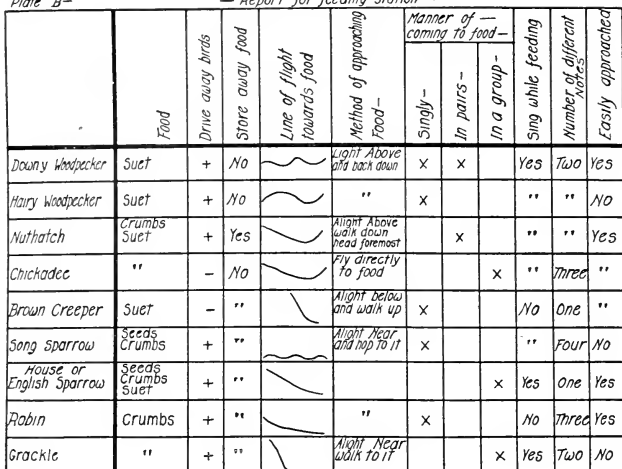 Plate B— — Report for feeding station
Food
Drive away birds
Store away food
Line of flight towards food
Method of approaching Food—
Manner of — coming to food—
Singly—
In pairs—
In a group—
Sing while feeding
Number of different Notes
Easily approached
Downy Woodpecker Suet + No Light Above and back down x x Yes Two Yes
Hairy Woodpecker Suet + No " x " " No
Nuthatch Crumbs Suet + Yes Alight Above walk down head foremost x " " Yes
Chickadee " - No Fly directly to food x " Three "
Brown Creeper Suet - " Alight below and walk up x No One "
Song Sparrow Seeds Crumbs + " Alight Near and hop to it x " Four No
House or English Sparrow Seeds Crumbs Suet + " x Yes One Yes
Robin Crumbs + " " x No Three Yes
Grackle " + " Alight Near walk to it x Yes Two No